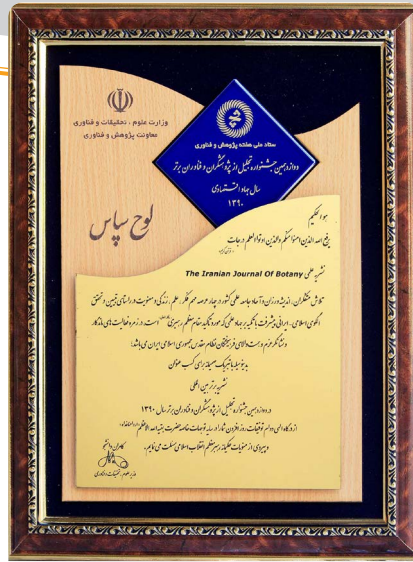 وزارت علوم ، تحقیقات و فناوری
معاونت پژوهش و فناوری
ستاد ملی هفته پژوهش و فناوری
دوازدهمین جشنواره تجلیل از پژوهشگران و فناوران برتر
سال جهاد اقتصادی
۱۳۹۰
لوح سپاس
هو الحکیم
یرفع الله الذین امنوا منکم والذین اوتوا العلم درجات
نشریه علمی The Iranian Journal Of Botany
تلاش متفکران، اندیشه ورزان و آحاد جامعه علمی کشور در چهار عرصه مهم فکر، علم، زندگی و معنویت در راستای تبیین و تحقق
الگوی اسلامی - ایرانی پیشرفت با تکیه بر جهاد علمی که مورد تاکید مقام معظم رهبری است، در زمره فعالیت های ماندگار
و نشانگر عزم و همت والای فرهیختگان نظام مقدس جمهوری اسلامی ایران می باشد؛
بدینوسیله با تبریک صمیمانه برای کسب عنوان
نشریه برتر بین المللی
در دوازدهمین جشنواره تجلیل از پژوهشگران و فناوران برتر سال ۱۳۹۰
از درگاه الهی دوام توفیقات روز افزون شما را در سایه توجهات خاصه حضرت بقیه الله الاعظم
و پیروی از منویات حکیمانه رهبر معظم انقلاب اسلامی مسئلت می نمایم.
کامران دانشجو
وزیر علوم، تحقیقات و فناوری